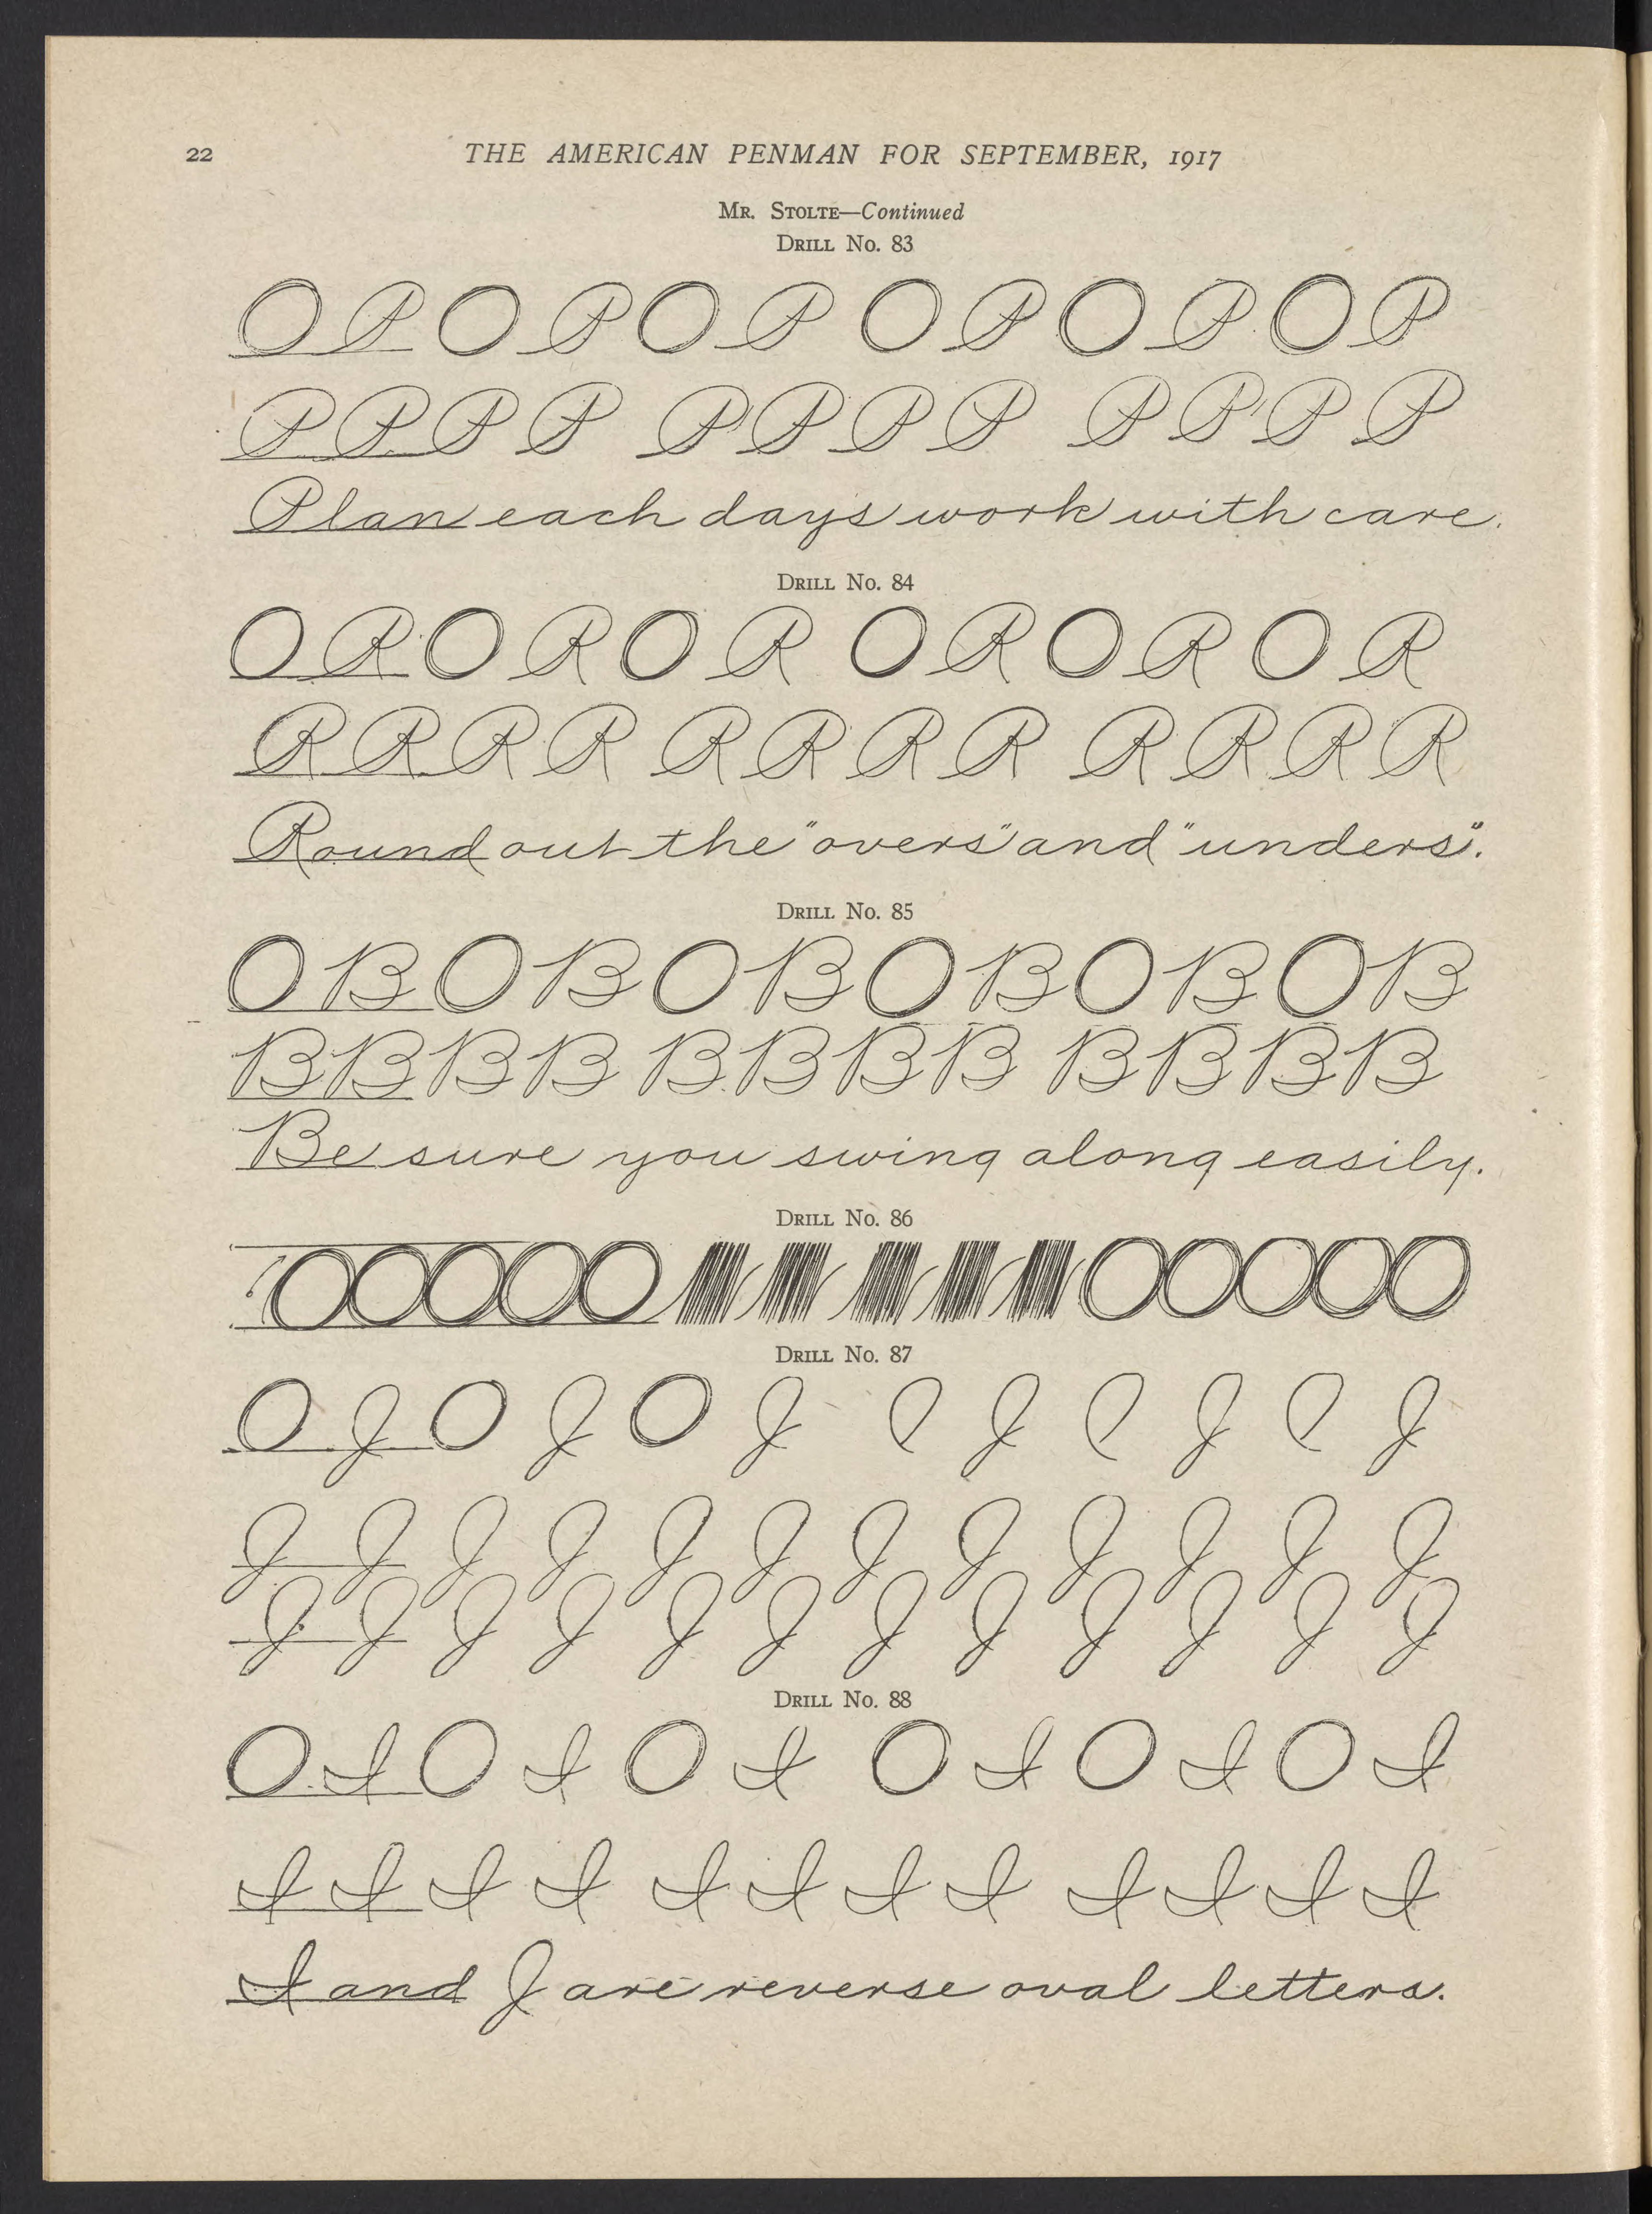 22
THE AMERICAN PENMAN FOR SEPTEMBER, 1917
MR. STOLTE—Continued
DRILL No. 83
O P O P O P O P O P O P
P P P P P P P P P P P P
Plan each day's work with care.
DRILL No. 84
O R O R O R O R O R O R
R R R R R R R R R R R R
Round out the "overs" and "unders".
DRILL No. 85
O B O B O B O B O B O B
B B B B B B B B B B B B
Be sure you swing along easily.
DRILL No. 86
DRILL No. 87
O J O J O J J J J
J J J J J J J J J J J J
J J J J J J J J J J J J
DRILL No. 88
O I O I O I O I O I O I
I I I I I I I I I I I I
I and J are reverse oval letters.